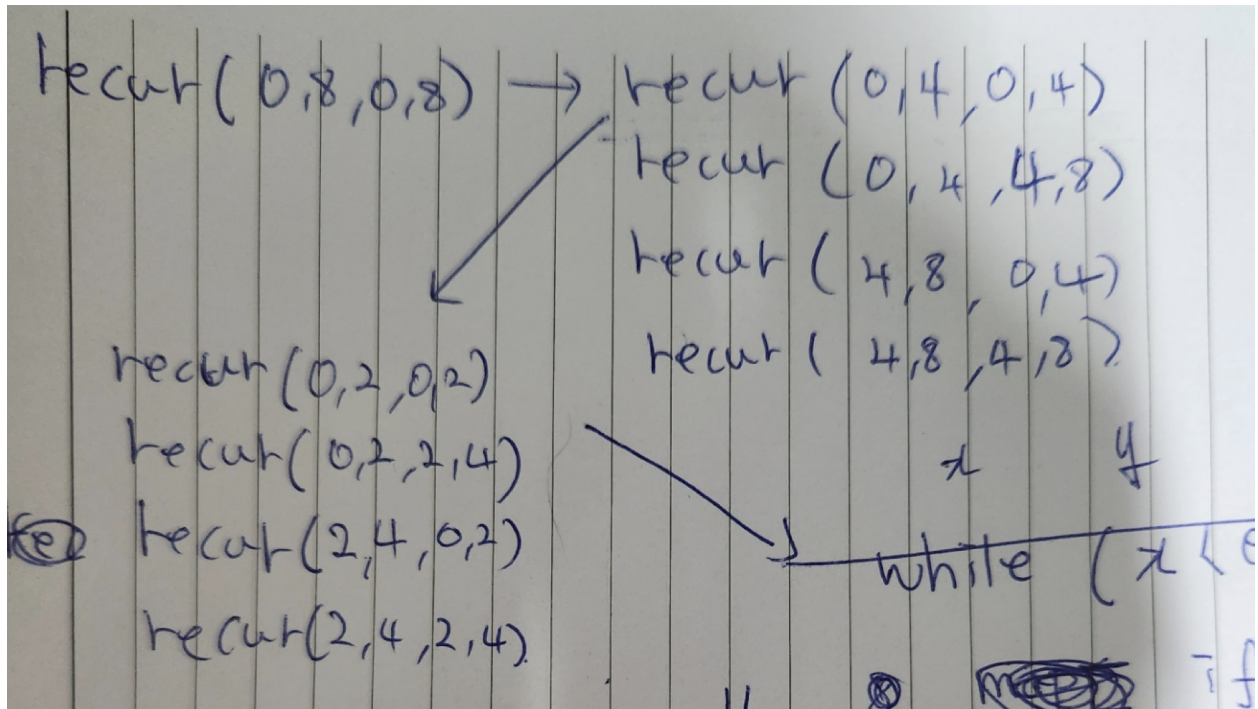 recur(0,8,0,8) → recur (0,4,0,4)
recur (0,4,4,8)
recur (4,8,0,4)
recur (4,8,4,8)
recur(0,2,0,2)
recur(0,2,2,4)
recur(2,4,0,2)
recur(2,4,2,4)
x y
while (x <
if